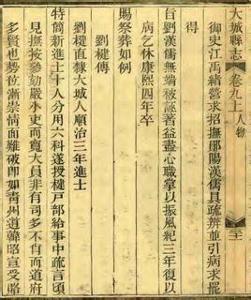 大城縣志 卷九上 人物
御史江禹緒營求招撫鄖陽漢儒具疏辨並引病求罷
台劉漢儒無端被誣著益盡心職掌以振風紀三年復以
病乞休康熙四年卒
賜祭葬如例
劉楗傳
劉楗直隸大城人順治二年進士
特簡新進士十人分用六科遂授楗戶部給事中疏言頃
見撫按參劾嚴小吏而寬大員非有司多不肖而道府
多賢也勢位漸崇情面難破即如青州道韓昭宣受賂